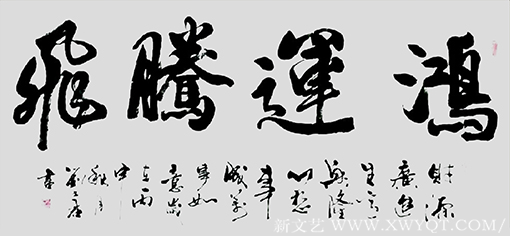 鴻運騰飛
財源
廣進
生意
興隆
心想
事
成萬
事如
意歲
在丙
申
秋月
劉
書
新文艺 WWW.XWYQT.COM